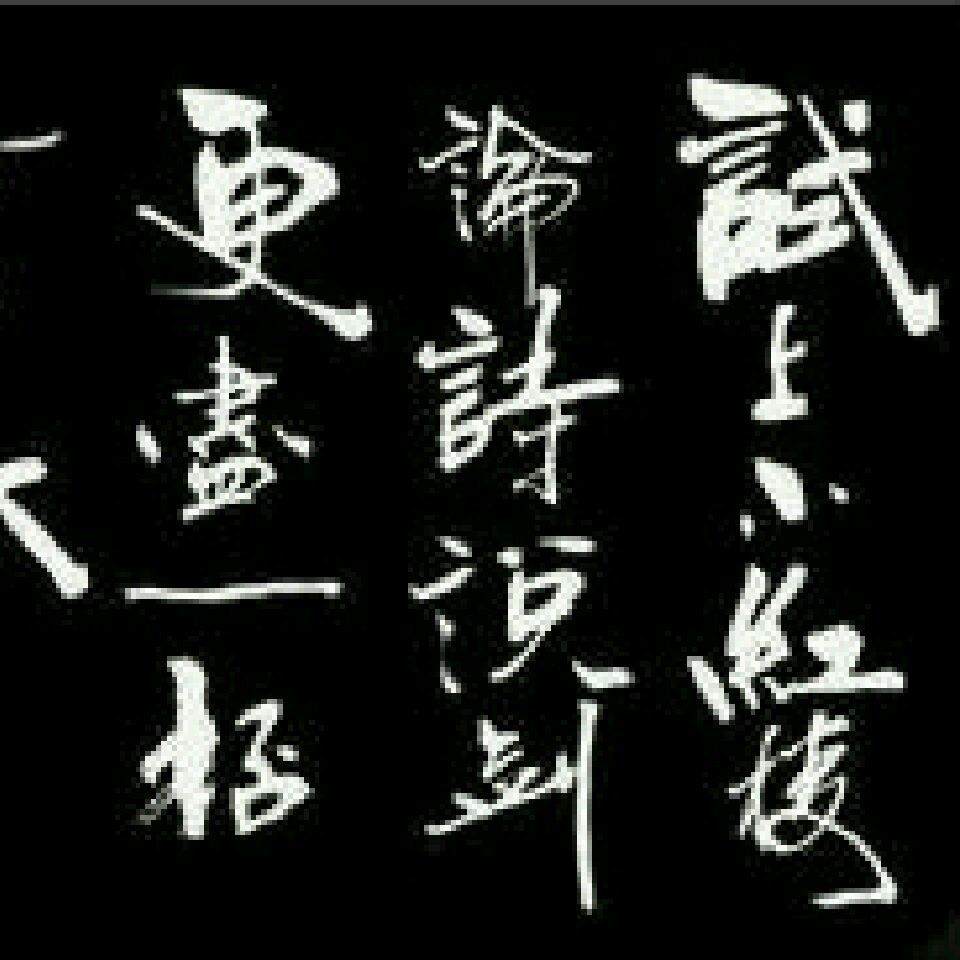 試上小紅樓
論詩說劍
更盡一杯